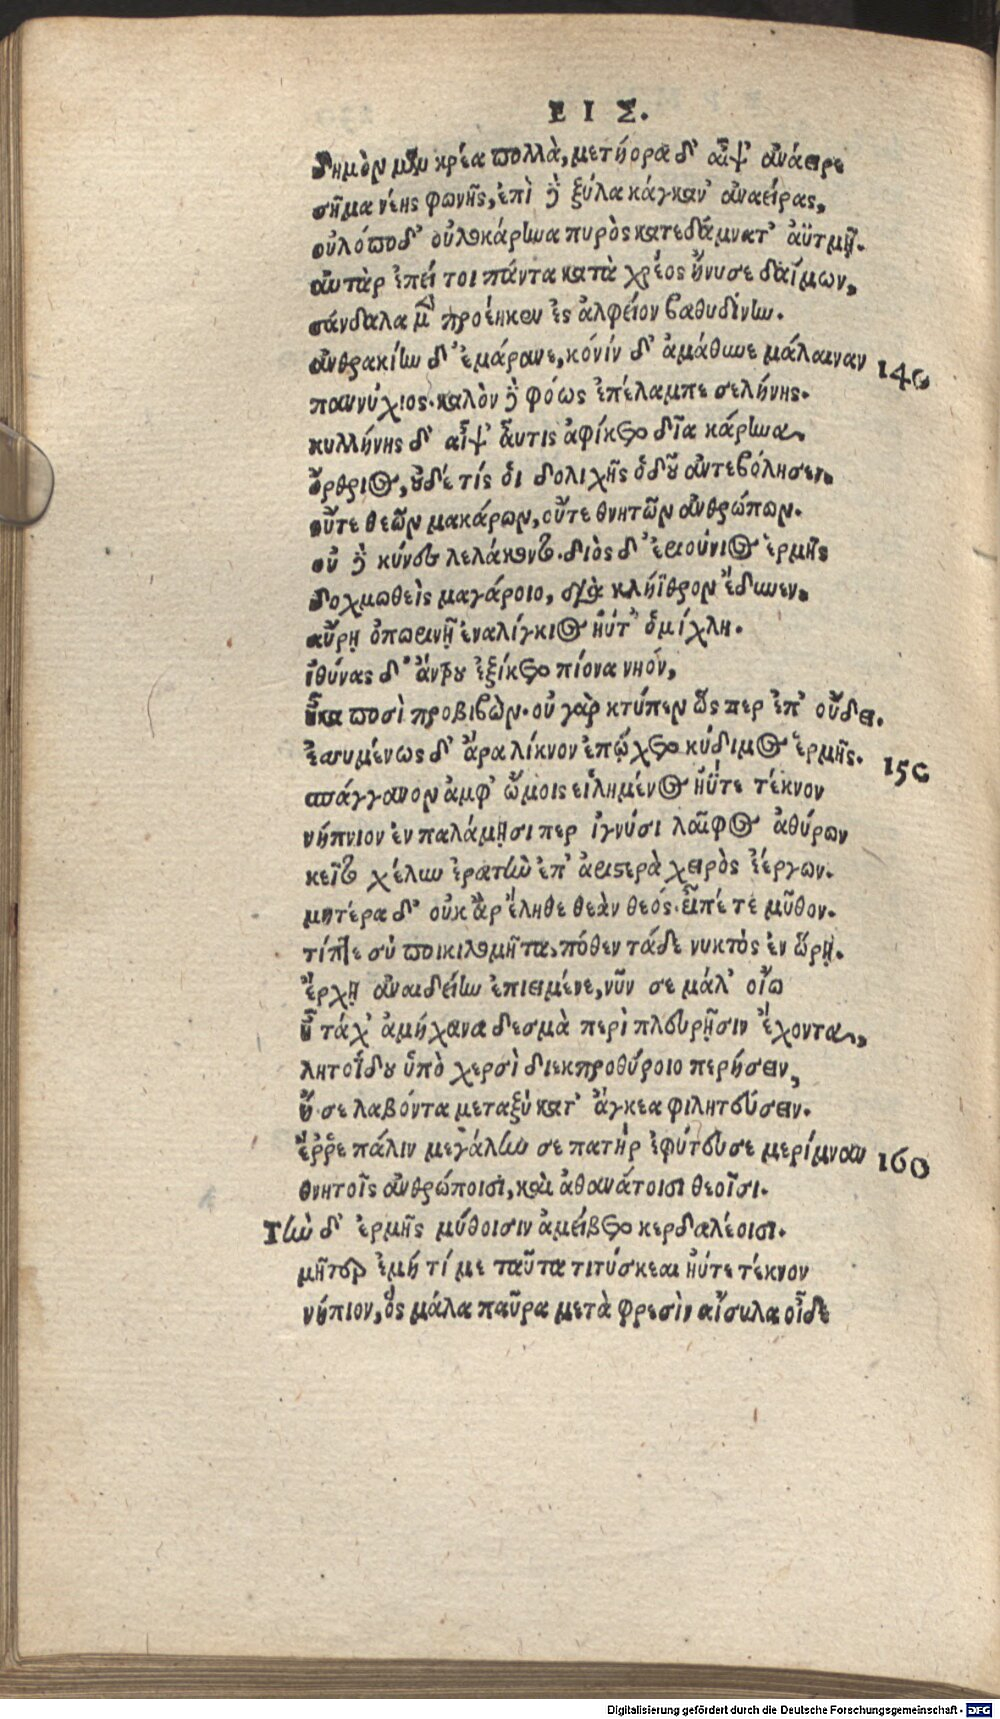 ΕΙΣ.
δημὸν μὲν κρέα πολλὰ, μετήορα δ' αἶψ' ἀνάειρε
σῆμα νέης φωνῆς, ἐπὶ δὲ ξύλα κάγκαν' ἀναείρας,
οὐλόποδ' οὐλοκάρηνα πυρὸς κατεδάμνατ' ἀϋτμῇ.
αὐτὰρ ἐπεί τοι πάντα κατὰ χρέος ἤνυσε δαίμων,
σάνδαλα μὲν προέηκεν ἐς ἀλφειὸν βαθυδίνην.
ἀνθρακιὴν δ' ἐμάρανε, κόνιν δ' ἀμάθυνε μέλαιναν 140
παννύχιος. καλὸν δὲ φόως ἐπέλαμπε σελήνης.
κυλλήνης δ' αἶψ' αὖτις ἀφίκετο δῖα κάρηνα
ὄρθριος, οὐδέ τίς οἱ δολιχῆς ὁδοῦ ἀντεβόλησεν
οὔτε θεῶν μακάρων, οὔτε θνητῶν ἀνθρώπων.
οὐ δὲ κύνες λελάκοντο. διὸς δ' ἐριούνιος ἑρμῆς
δοχμωθεὶς μεγάροιο, διὰ κλήϊθρον ἔδυνεν
αὔρῃ ὀπωρινῇ ἐναλίγκιος ἠΰτ' ὁμίχλη.
ἰθύνας δ' ἄντρου ἐξίκετο πίονα νηόν,
ἦκα ποσὶ προβιβὼν. οὐ γὰρ κτύπεν ὥς περ ἐπ' οὔδει.
ἐσσυμένως δ' ἄρα λίκνον ἐπῴχετο κύδιμος ἑρμῆς. 150
σπάργανον ἀμφ' ὤμοις εἰλημένος ἠΰτε τέκνον
νήπιον ἐν παλάμῃσι περ ἰγνύσι λαῖφος ἀθύρων
κεῖτο χέλυν ἐρατὴν ἐπ' ἀριστερὰ χειρὸς ἐέργων.
μητέρα δ' οὐκ ἄρ' ἔληθε θεὰν θεός. εἶπέ τε μῦθον.
τίπτε σὺ ποικιλομῆτα, πόθεν τάδε νυκτὸς ἐν ὥρῃ.
ἔρχῃ ἀναιδείην ἐπιειμένε, νῦν σε μάλ' οἴω
ἢ τάχ' ἀμήχανα δεσμὰ περὶ πλευρῇσιν ἔχοντα,
λητοΐδου ὑπὸ χερσὶ διεκπροθύροιο περήσειν,
ἤ σε λαβόντα μεταξὺ κατ' ἄγκεα φιλητεύσειν.
ἔῤῥε πάλιν μεγάλην σε πατὴρ ἐφύτευσε μερίμναν 160
θνητοῖς ἀνθρώποισι, καὶ ἀθανάτοισι θεοῖσι.
Τὴν δ' ἑρμῆς μύθοισιν ἀμείβετο κερδαλέοισι.
μῆτερ ἐμή τί με ταῦτα τιτύσκεαι ἠύτε τέκνον
νήπιον, ὃς μάλα παῦρα μετὰ φρεσὶν αἴσυλα οἶδε
Digitalisierung gefördert durch die Deutsche Forschungsgemeinschaft - DFG